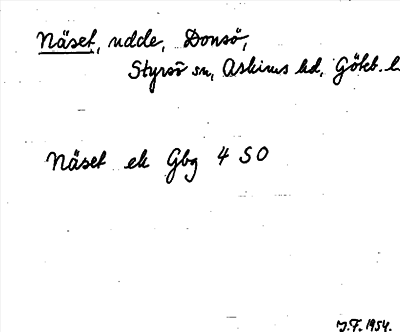 Näset, udde, Donsö,
Styrsö sn, Askims hd, Göteb. l
Näset ek Gbg 4 SO
J.F. 1954.